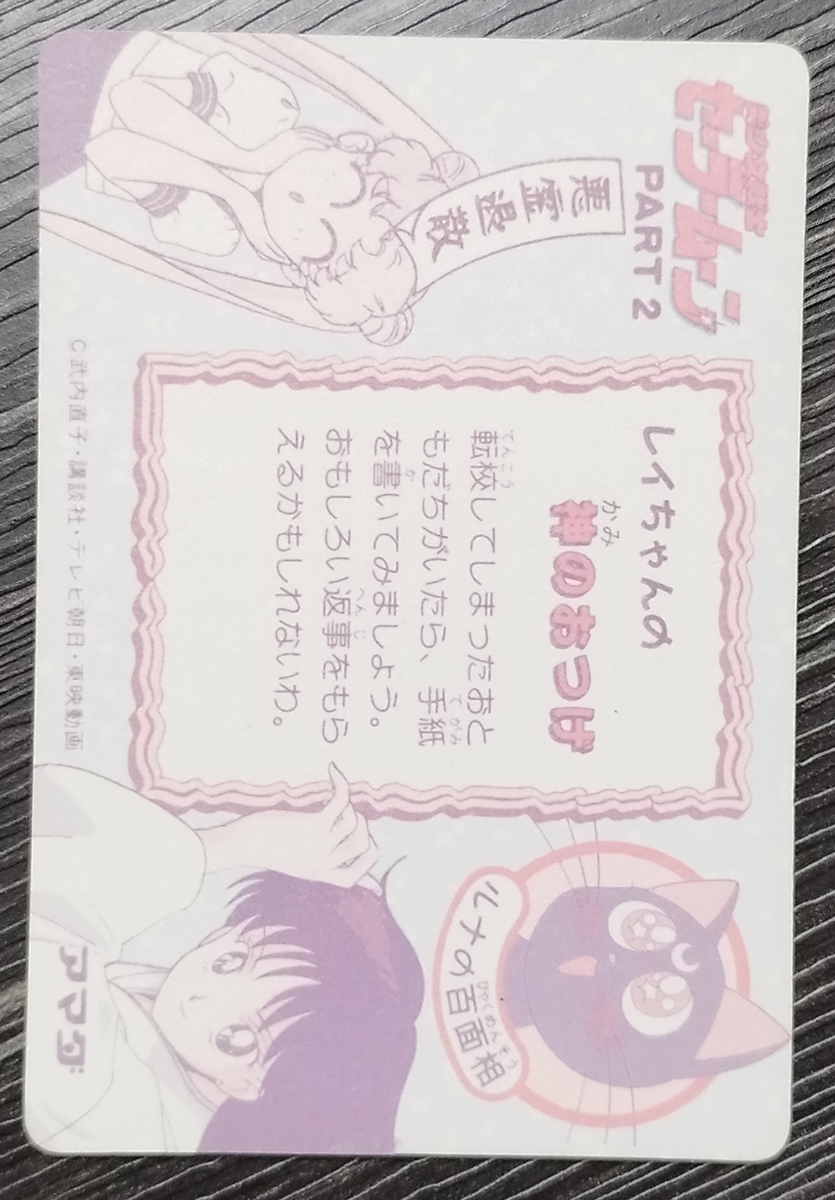 美少女戦士
セーラームーン
PART 2
悪霊退散
レイちゃんの
神のおつげ
かみ
転校してしまったおと
てんこう
もだちがいたら、手紙
てがみ
を書いてみましょう。
か
おもしろい返事をもら
へんじ
えるかもしれないわ。
ルナの百面相
ひゃくめんそう
©武内直子・講談社・テレビ朝日・東映動画
アマダ